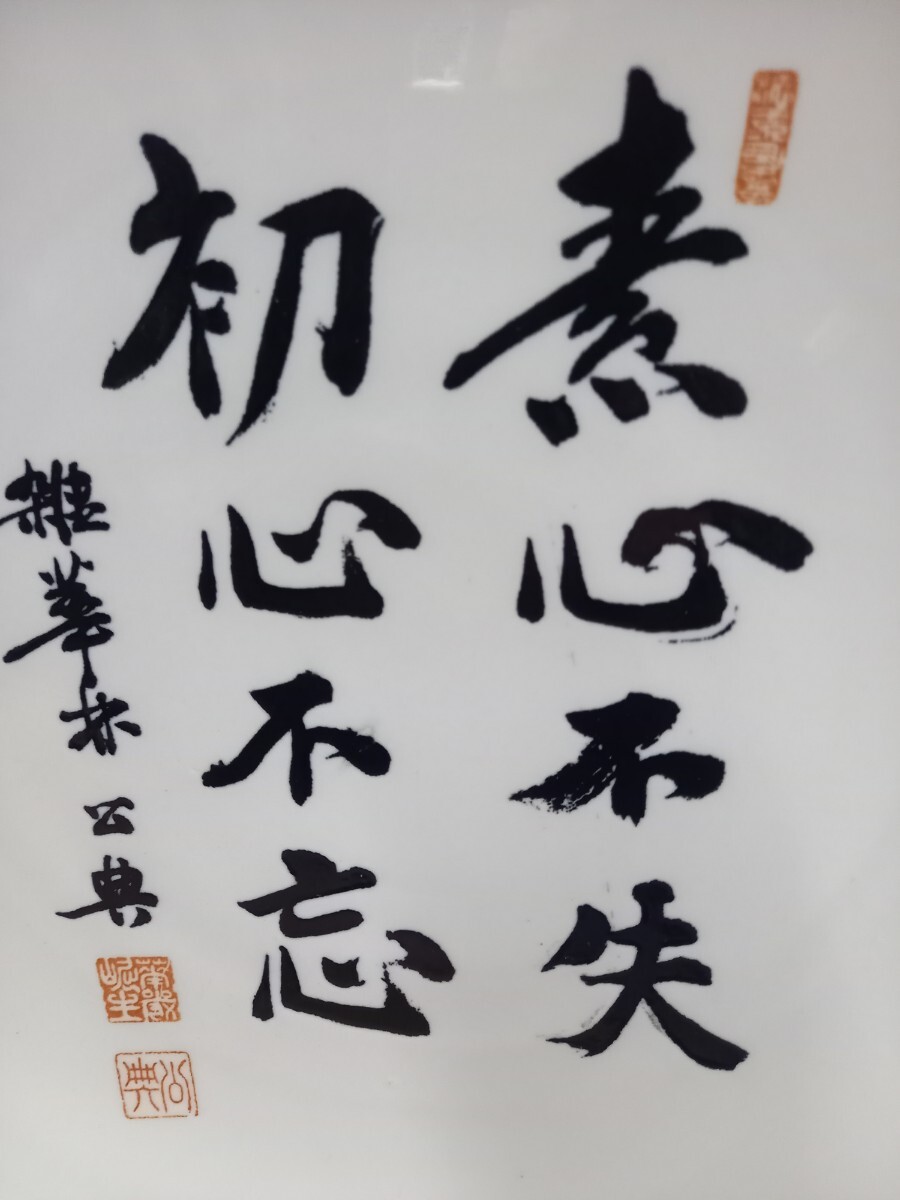 素心不失
初心不忘
公典
公典